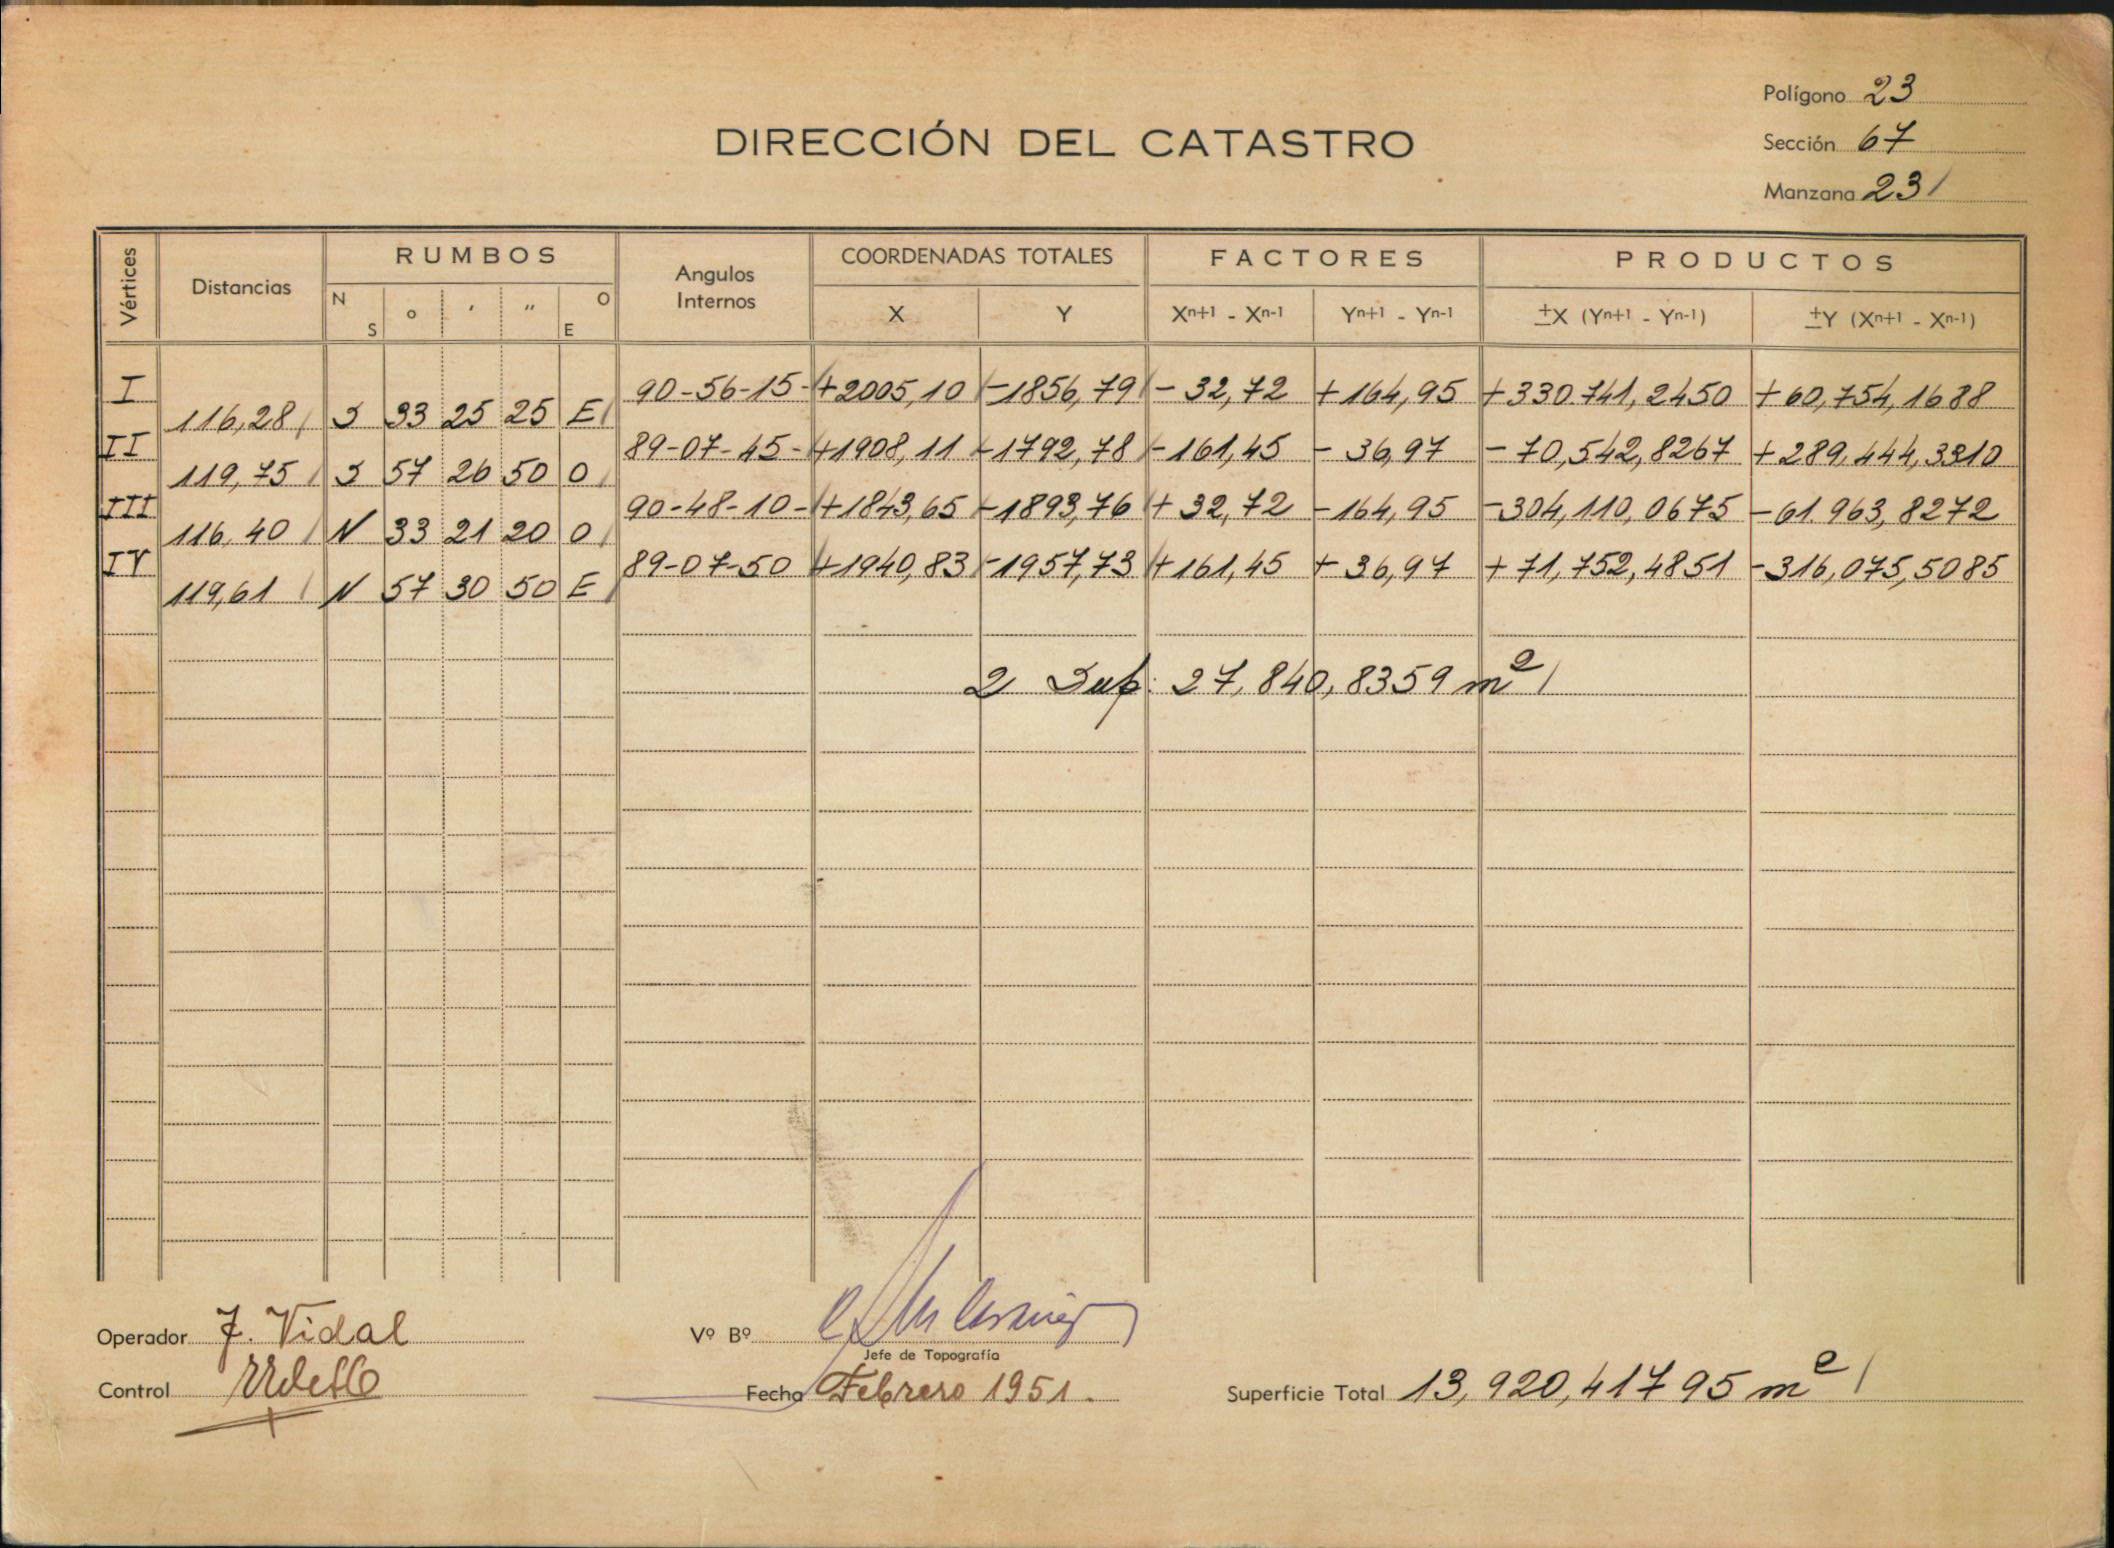 Polígono 23
DIRECCIÓN DEL CATASTRO
Sección 67
Manzana 23
Vértices Distancias RUMBOS Angulos Internos COORDENADAS TOTALES FACTORES PRODUCTOS
N S ° ' " O E X Y Xn+1 - Xn-1 Yn+1 - Yn-1 ±X (Yn+1 - Yn-1) ±Y (Xn+1 - Xn-1)
I 90-56-15- +2005,10 -1856,79 - 32,72 + 164,95 +330.741,2450 + 60,754,1688
116,28 S 33 25 25 E
II 89-07-45- +1908,11 -1792,78 -161,45 - 36,97 - 70,542,8267 + 289,444,3310
119,75 S 57 26 50 O
III 90-48-10- +1843,65 -1893,76 + 32,72 -164,95 -304,110,0675 -61.963,8272
116,40 N 33 21 20 O
IV 89-07-50 +1940,83 -1957,73 +161,45 + 36,97 + 71,752,4851 -316,075,5085
119,61 N 57 30 50 E
2 Sup: 27,840,8359 m²
Operador J. Vidal Vº Bº
Jefe de Topografía
Control Fecha Febrero 1951. Superficie Total 13,920,41795 m²